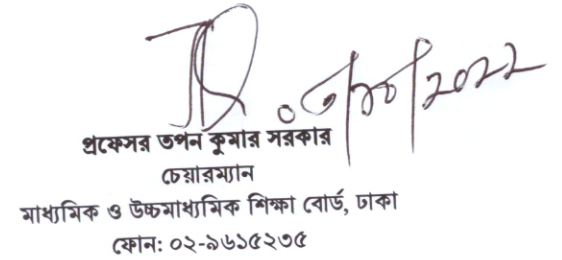 ২০২২
প্রফেসর তপন কুমার সরকার
চেয়ারম্যান
মাধ্যমিক ও উচ্চমাধ্যমিক শিক্ষা বোর্ড, ঢাকা
ফোন: ০২-৯৬১৫২৩৫